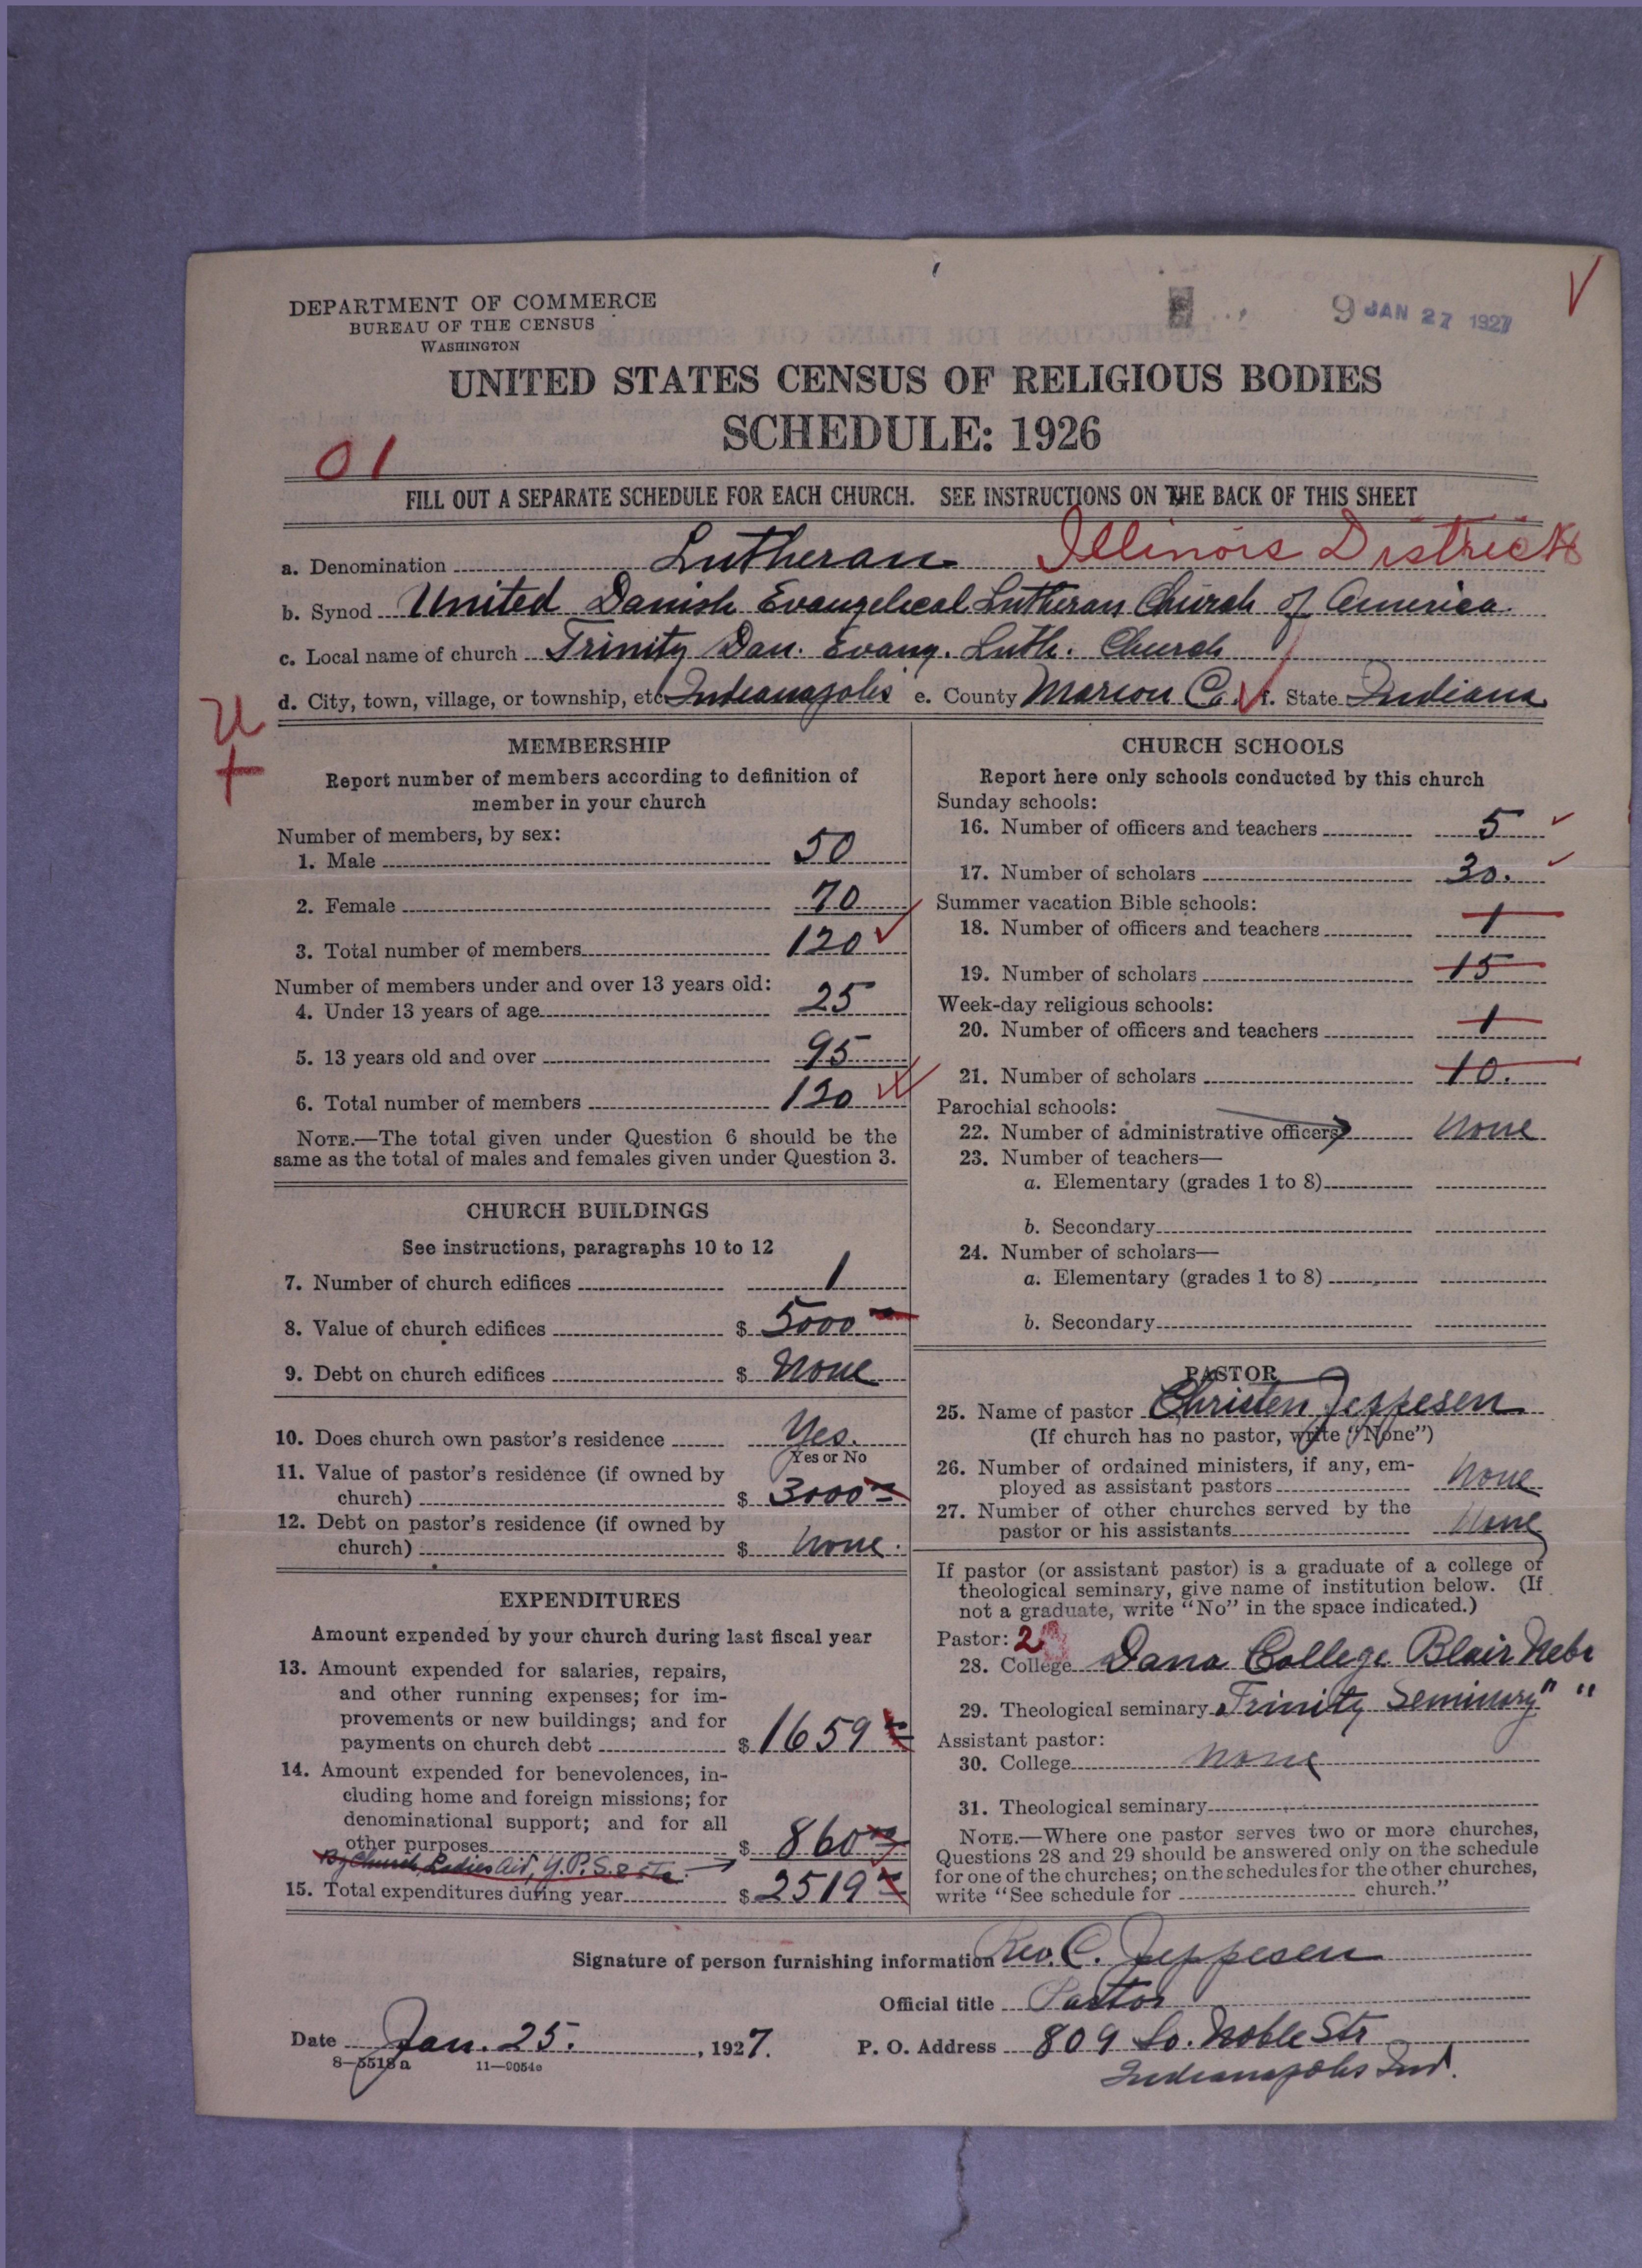 DEPARTMENT OF COMMERCE
BUREAU OF THE CENSUS
WASHINGTON
9 JAN 27 1927
UNITED STATES CENSUS OF RELIGIOUS BODIES
SCHEDULE: 1926
01
FILL OUT A SEPARATE SCHEDULE FOR EACH CHURCH. SEE INSTRUCTIONS ON THE BACK OF THIS SHEET
a. Denomination Lutheran Illinois District
b. Synod United Danish Evangelical Lutheran Church of America.
c. Local name of church Trinity Dan. Evang. Luth. Church
d. City, town, village, or township, etc. Indianapolis e. County Marion Co. f. State Indiana
U
+
MEMBERSHIP
Report number of members according to definition of
member in your church
Number of members, by sex:
1. Male 50
2. Female 70
3. Total number of members 120
Number of members under and over 13 years old:
4. Under 13 years of age 25
5. 13 years old and over 95
6. Total number of members 120
NOTE.—The total given under Question 6 should be the
same as the total of males and females given under Question 3.
CHURCH BUILDINGS
See instructions, paragraphs 10 to 12
7. Number of church edifices 1
8. Value of church edifices $ 5000
9. Debt on church edifices $ None
10. Does church own pastor's residence Yes.
Yes or No
11. Value of pastor's residence (if owned by
church) $ 3000
12. Debt on pastor's residence (if owned by
church) $ None.
EXPENDITURES
Amount expended by your church during last fiscal year
13. Amount expended for salaries, repairs,
and other running expenses; for im-
provements or new buildings; and for
payments on church debt $ 1659
14. Amount expended for benevolences, in-
cluding home and foreign missions; for
denominational support; and for all
other purposes $ 860
By Church, Ladies Aid, Y.P.S. & etc.
15. Total expenditures during year $ 2519
CHURCH SCHOOLS
Report here only schools conducted by this church
Sunday schools:
16. Number of officers and teachers 5
17. Number of scholars 30.
Summer vacation Bible schools:
18. Number of officers and teachers 1
19. Number of scholars 15
Week-day religious schools:
20. Number of officers and teachers 1
21. Number of scholars 10.
Parochial schools:
22. Number of administrative officers None
23. Number of teachers—
a. Elementary (grades 1 to 8)
b. Secondary
24. Number of scholars—
a. Elementary (grades 1 to 8)
b. Secondary
PASTOR
25. Name of pastor Christen Jeppesen
(If church has no pastor, write "None")
26. Number of ordained ministers, if any, em-
ployed as assistant pastors None
27. Number of other churches served by the
pastor or his assistants None
If pastor (or assistant pastor) is a graduate of a college or
theological seminary, give name of institution below. (If
not a graduate, write "No" in the space indicated.)
Pastor: 2
28. College Dana College Blair Nebr
29. Theological seminary Trinity Seminary " "
Assistant pastor:
30. College None
31. Theological seminary
NOTE.—Where one pastor serves two or more churches,
Questions 28 and 29 should be answered only on the schedule
for one of the churches; on the schedules for the other churches,
write "See schedule for church."
Signature of person furnishing information Rev. C. Jeppesen
Official title Pastor
Date Jan. 25., 1927.
P. O. Address 809 So. Noble Str
Indianapolis Ind.
8—5518a 11—9054c